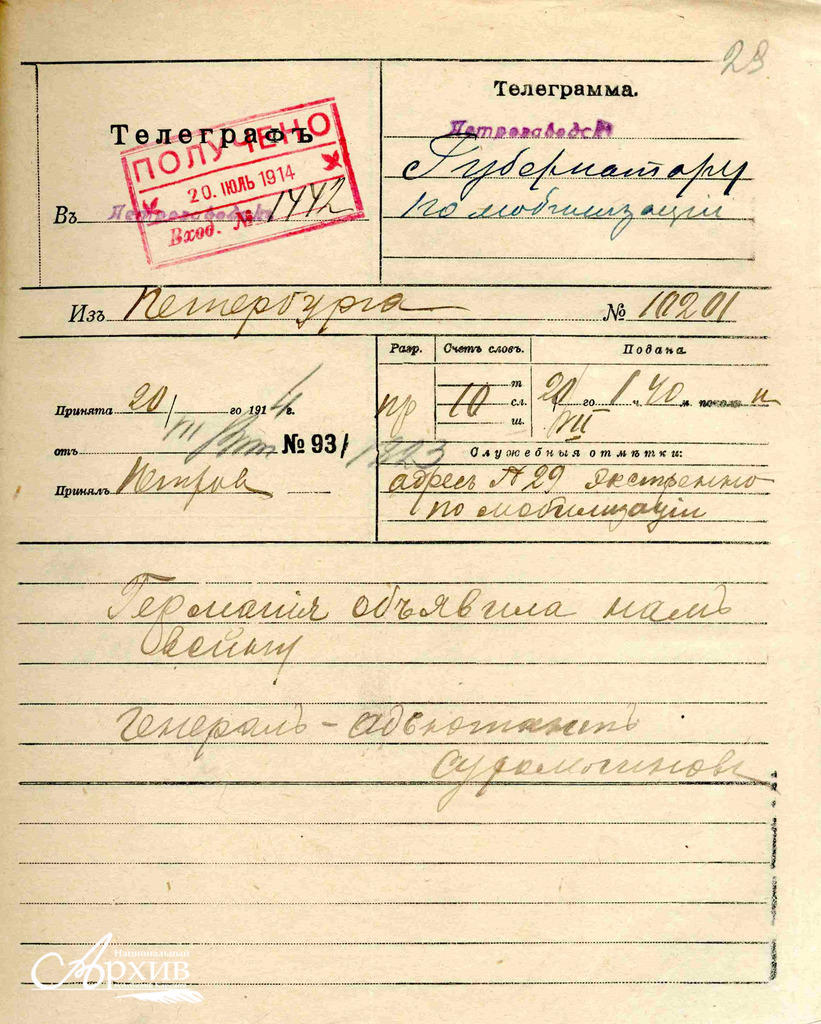 23
Телеграфъ
ПОЛУЧЕНО
20. ІЮЛЬ 1914
Въ Петрозаводскѣ
Вход. № 1442
Телеграмма.
Петрозаводскъ
Губернатору
по мобилизаціи
Изъ Петербурга № 10201
Принята 20/VII го 1914 г.
отъ № 93/ 1223
Принялъ Петров
Разр. Счетъ словъ. Подана
пр 10 т сл. ш. го 1 ч. 40 м. пополу н
VII
Служебныя отмѣтки:
адресъ А 29 экстренно
по мобилизаціи
Германія объявила намъ
войну
генералъ-адъютантъ
сухомлиновъ
Национальный
Архив